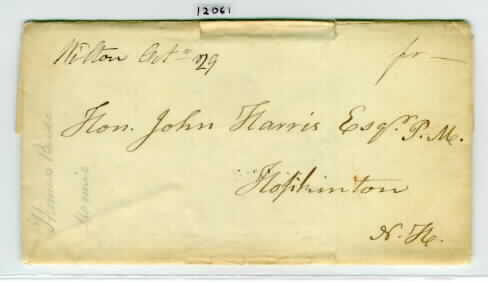 12061
Wilton Octr 29
fr —
Hon. John Harris Esqr. P. M.
Hopkinton
N. H.
Thomas